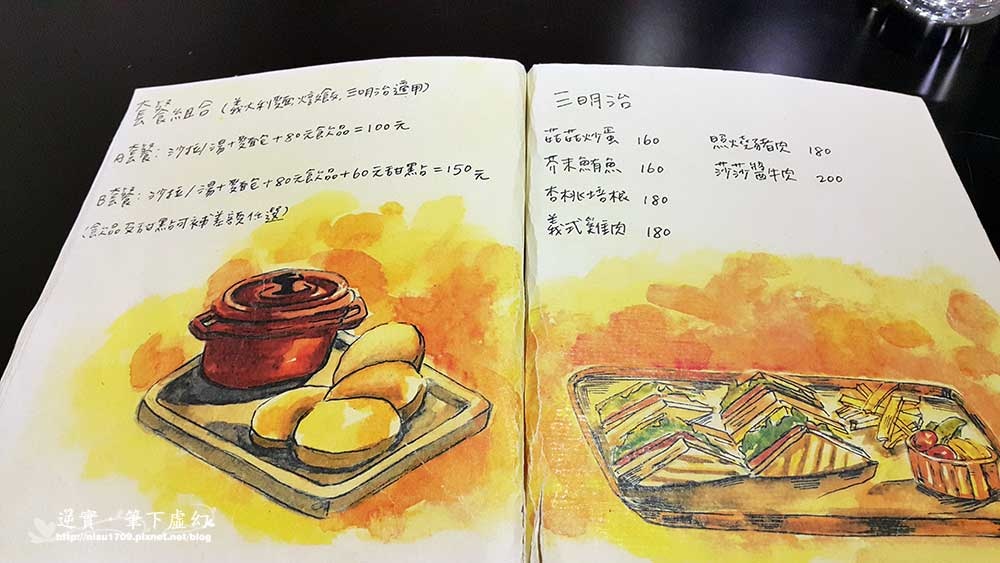 套餐組合 (義大利麵.焗飯.三明治適用)
A套餐: 沙拉/湯+麵包+80元飲品=100元
B套餐: 沙拉/湯+麵包+80元飲品+60元甜點=150元
(飲品及甜點可補差額任選)
三明治
菇菇炒蛋 160
芥末鮪魚 160
杏桃培根 180
義式雞肉 180
照燒豬肉 180
莎莎醬牛肉 200
逆實 筆下虛幻
http://nisu1709.pixnet.net/blog